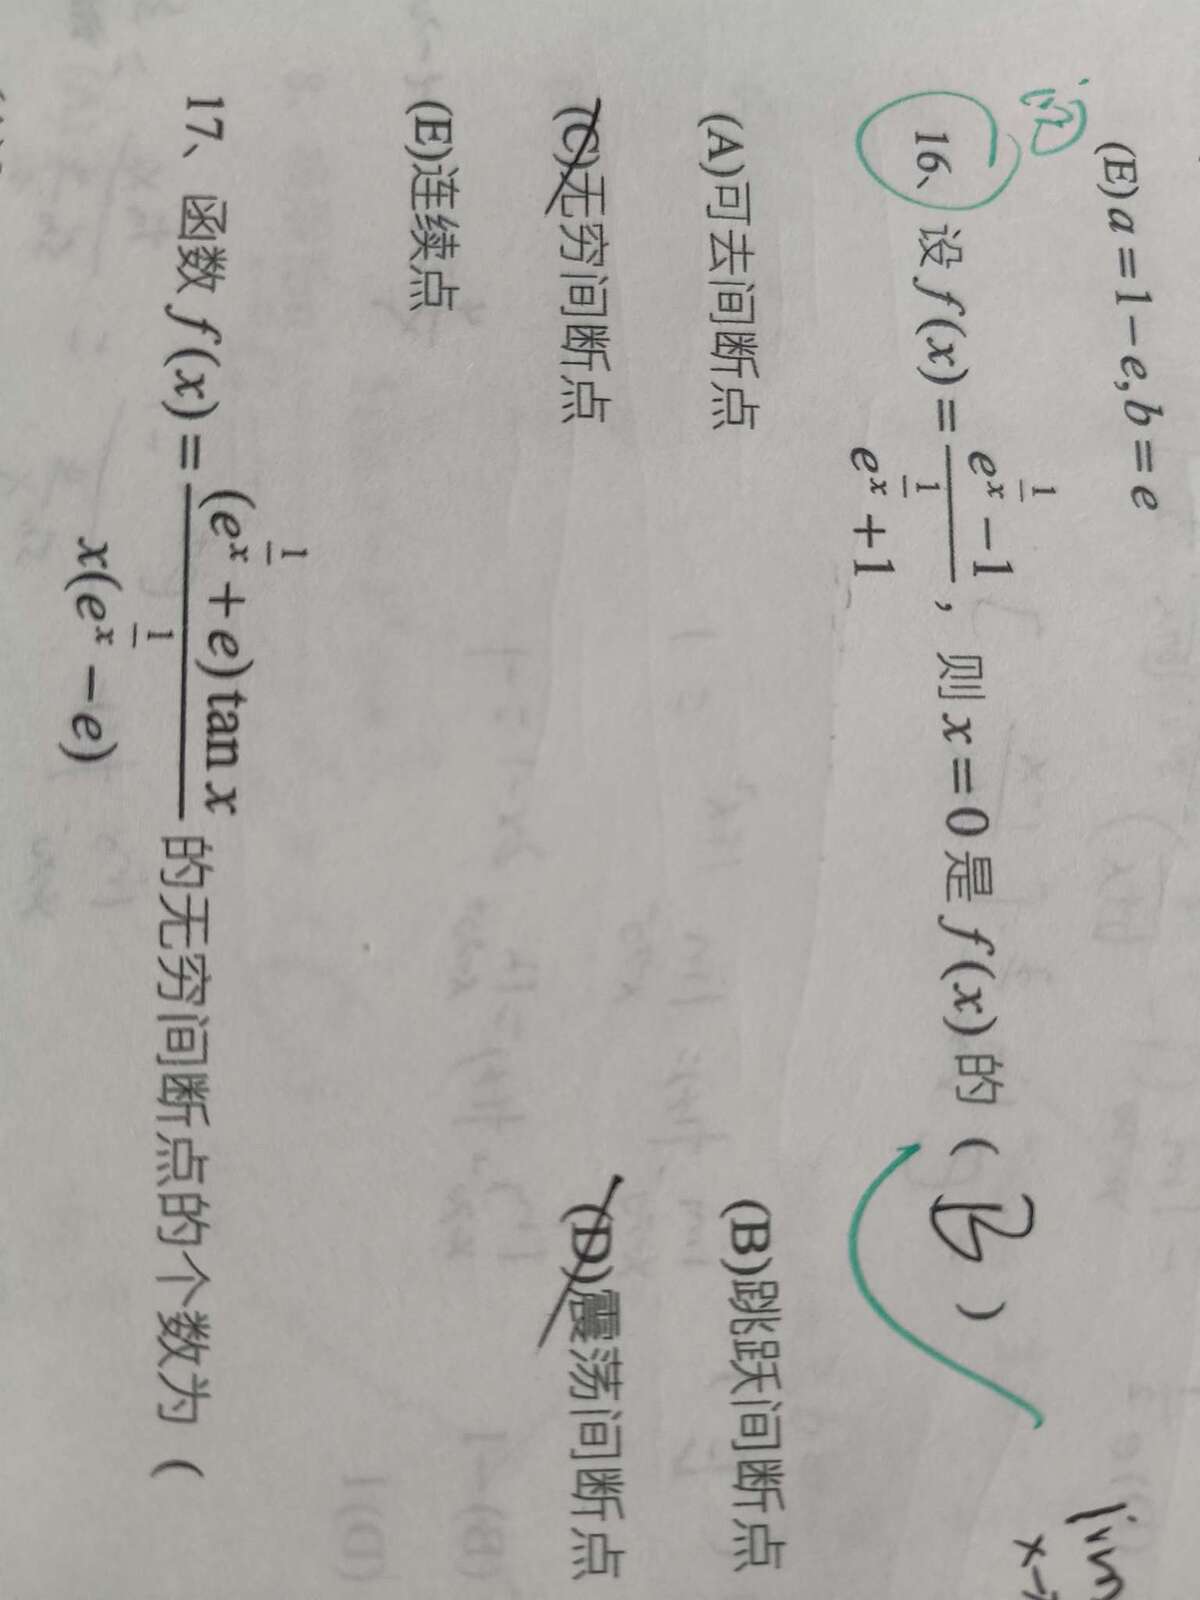 (E) a = 1 − e, b = e
问
16、设 f(x) = \frac{e^{\frac{1}{x}} − 1}{e^{\frac{1}{x}} + 1}，则 x = 0 是 f(x) 的（ B ）
(A)可去间断点 (B)跳跃间断点
(C)无穷间断点 (D)震荡间断点
(E)连续点
17、函数 f(x) = \frac{(e^{\frac{1}{x}} + e) tan x}{x(e^{\frac{1}{x}} − e)} 的无穷间断点的个数为（
lim
x→